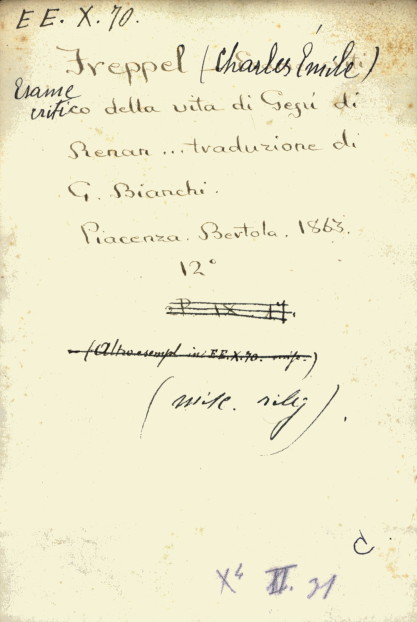 EE. X. 70.
Freppel (Charles Émile)
Esame
critico della vita di Gesú di
Renan ... traduzione di
G. Bianchi.
Piacenza. Bertola. 1863.
12°
P IX 17.
(Altro esempl in EE.X.70. misc.)
(misc. rileg)
X⁴ II. 31